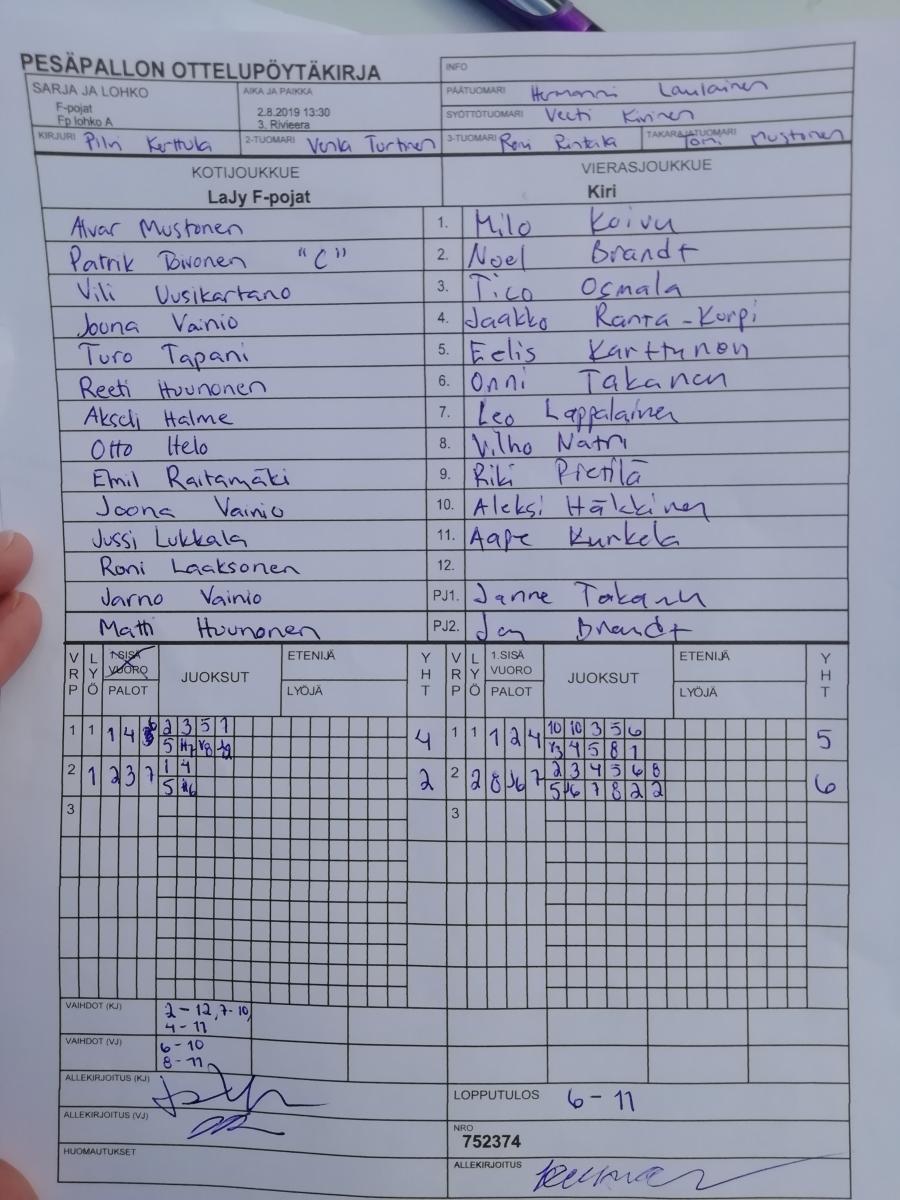 PESÄPALLON OTTELUPÖYTÄKIRJA
INFO
SARJA JA LOHKO
F-pojat
Fp lohko A
AIKA JA PAIKKA
2.8.2019 13:30
3. Rivieera
PÄÄTUOMARI Hermanni Laulainen
SYÖTTÖTUOMARI Veeti Kivinen
KIRJURI Pilvi Kerttula
2-TUOMARI Venla Turtinen
3-TUOMARI Roni Rintala
TAKARAJATUOMARI Tomi Mustonen
KOTIJOUKKUE
LaJy F-pojat
VIERASJOUKKUE
Kiri
Alvar Mustonen 1. Milo Koivu
Patrik Toivonen "C" 2. Noel Brandt
Vili Uusikartano 3. Tico Osmala
Joona Vainio 4. Jaakko Ranta-Korpi
Turo Tapani 5. Eelis Karttunen
Reeti Huunonen 6. Onni Takanen
Akseli Halme 7. Leo Lappalainen
Otto Helo 8. Vilho Natri
Emil Raitamäki 9. Riki Pietilä
Joona Vainio 10. Aleksi Häkkinen
Jussi Lukkala 11. Aape Kunkela
Roni Laaksonen 12.
Jarno Vainio PJ1. Janne Takanen
Matti Huunonen PJ2. Brandt
VRP LYÖ 1.SISÄ VUORO PALOT JUOKSUT ETENIJÄ LYÖJÄ YHT
VRP LYÖ 1.SISÄ VUORO PALOT JUOKSUT ETENIJÄ LYÖJÄ YHT
1 1 1 4 2 3 5 7 4 1 1 1 2 4 10 10 3 5 6 5
5 4 5 8 1
2 1 2 3 7 1 4 2 2 2 8 7 2 3 4 5 6 8 6
5 5 7 8 2 2
3 3
VAIHDOT (KJ) 2-12, 7-10,
4-11
VAIHDOT (VJ) 6-10
8-11
ALLEKIRJOITUS (KJ)
LOPPUTULOS 6-11
ALLEKIRJOITUS (VJ)
NRO
752374
HUOMAUTUKSET
ALLEKIRJOITUS